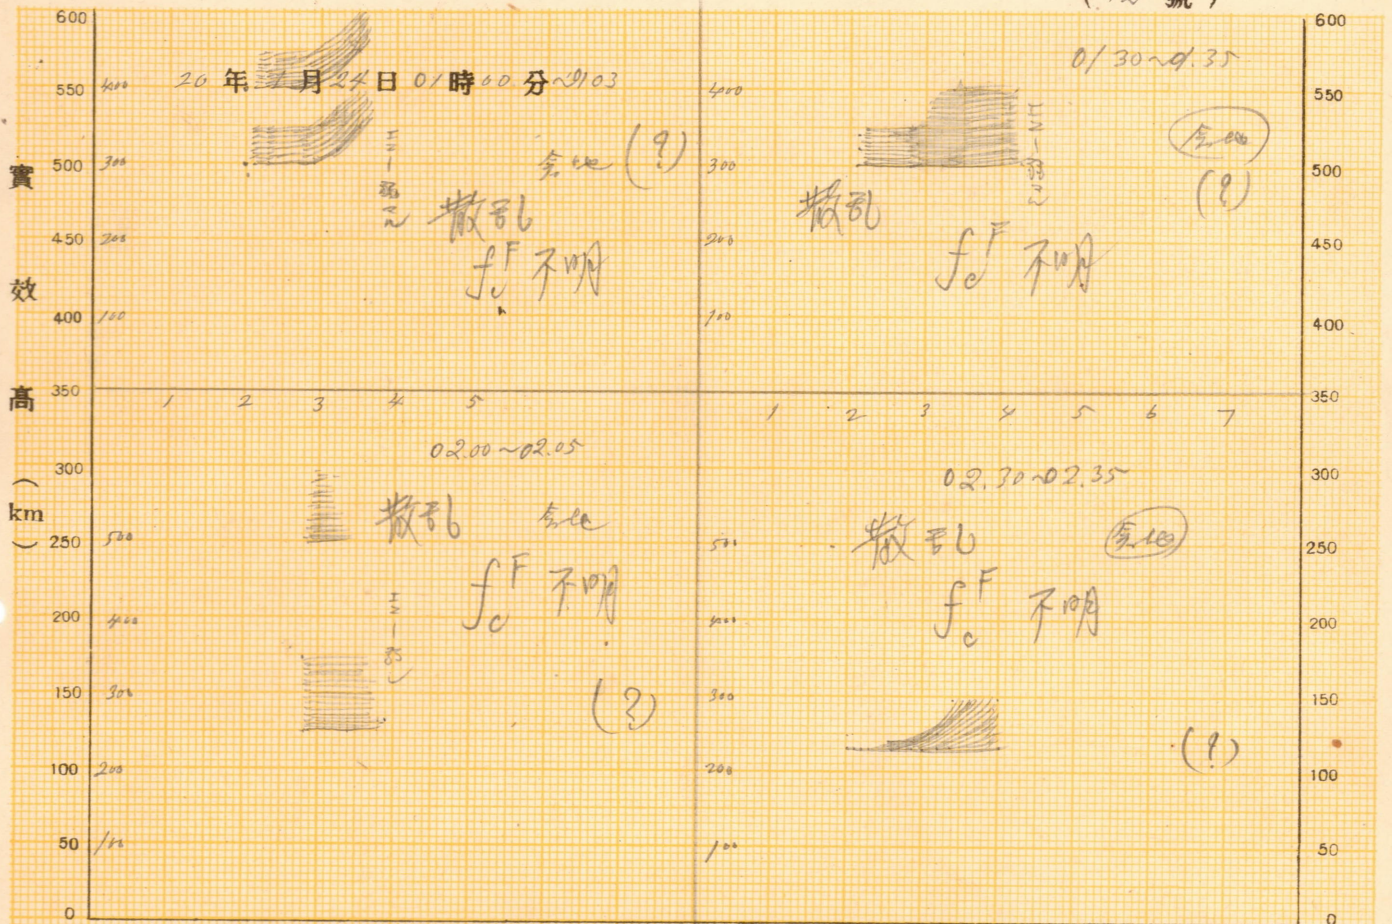 號)
600
550
500
450
400
350
300
250
200
150
100
50
0
實效高(km)
20年 月24日01時00分~0103
400
300
200
100
(?)
散乱
fcF 不明
1 2 3 4 5
01 30~01.35
400
300
200
100
(?)
散乱
fcF 不明
1 2 3 4 5 6 7
02.00~02.05
500
400
300
200
100
散乱
fcF 不明
(?)
02.30~02.35
500
400
300
200
100
散乱
fcF 不明
(?)
600
550
500
450
400
350
300
250
200
150
100
50
0